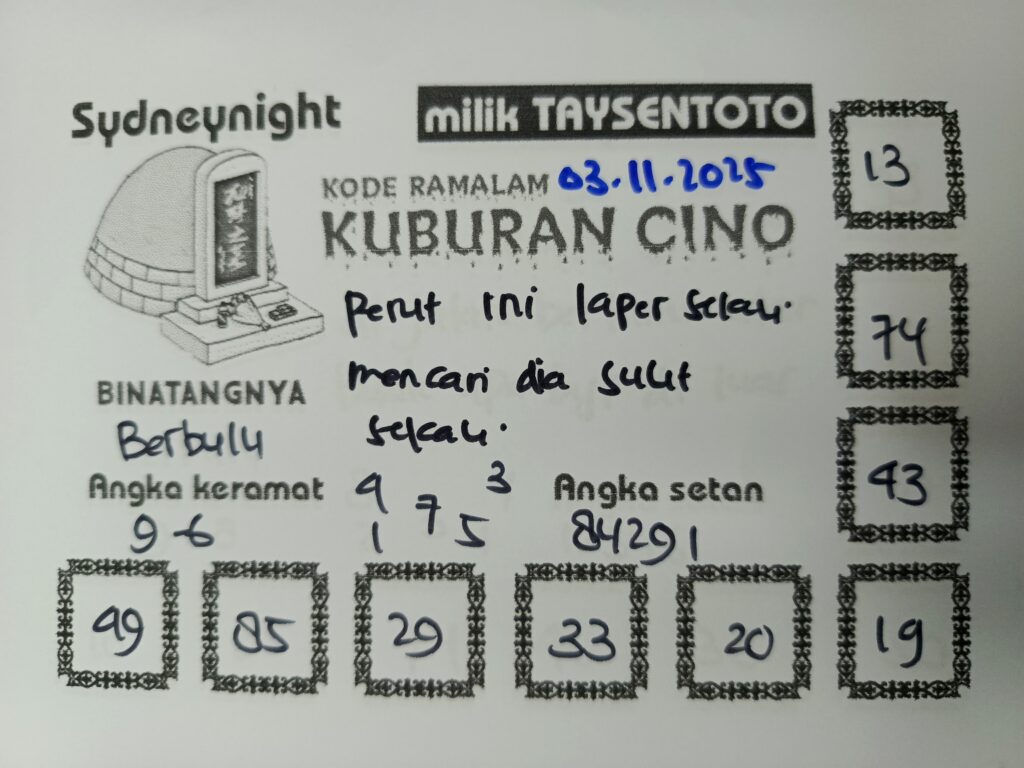 Sydneynight
milik TAYSENTOTO
KODE RAMALAM 03.11.2025
KUBURAN CINO
Perut ini laper selali.
mencari dia sulit
sekali.
BINATANGNYA
Berbulu
Angka keramat
9 6
9 3
7
1 5
Angka setan
84291
13
74
43
49 85 29 33 20 19